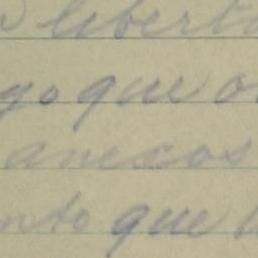 libert
go que o
anexos
nto que